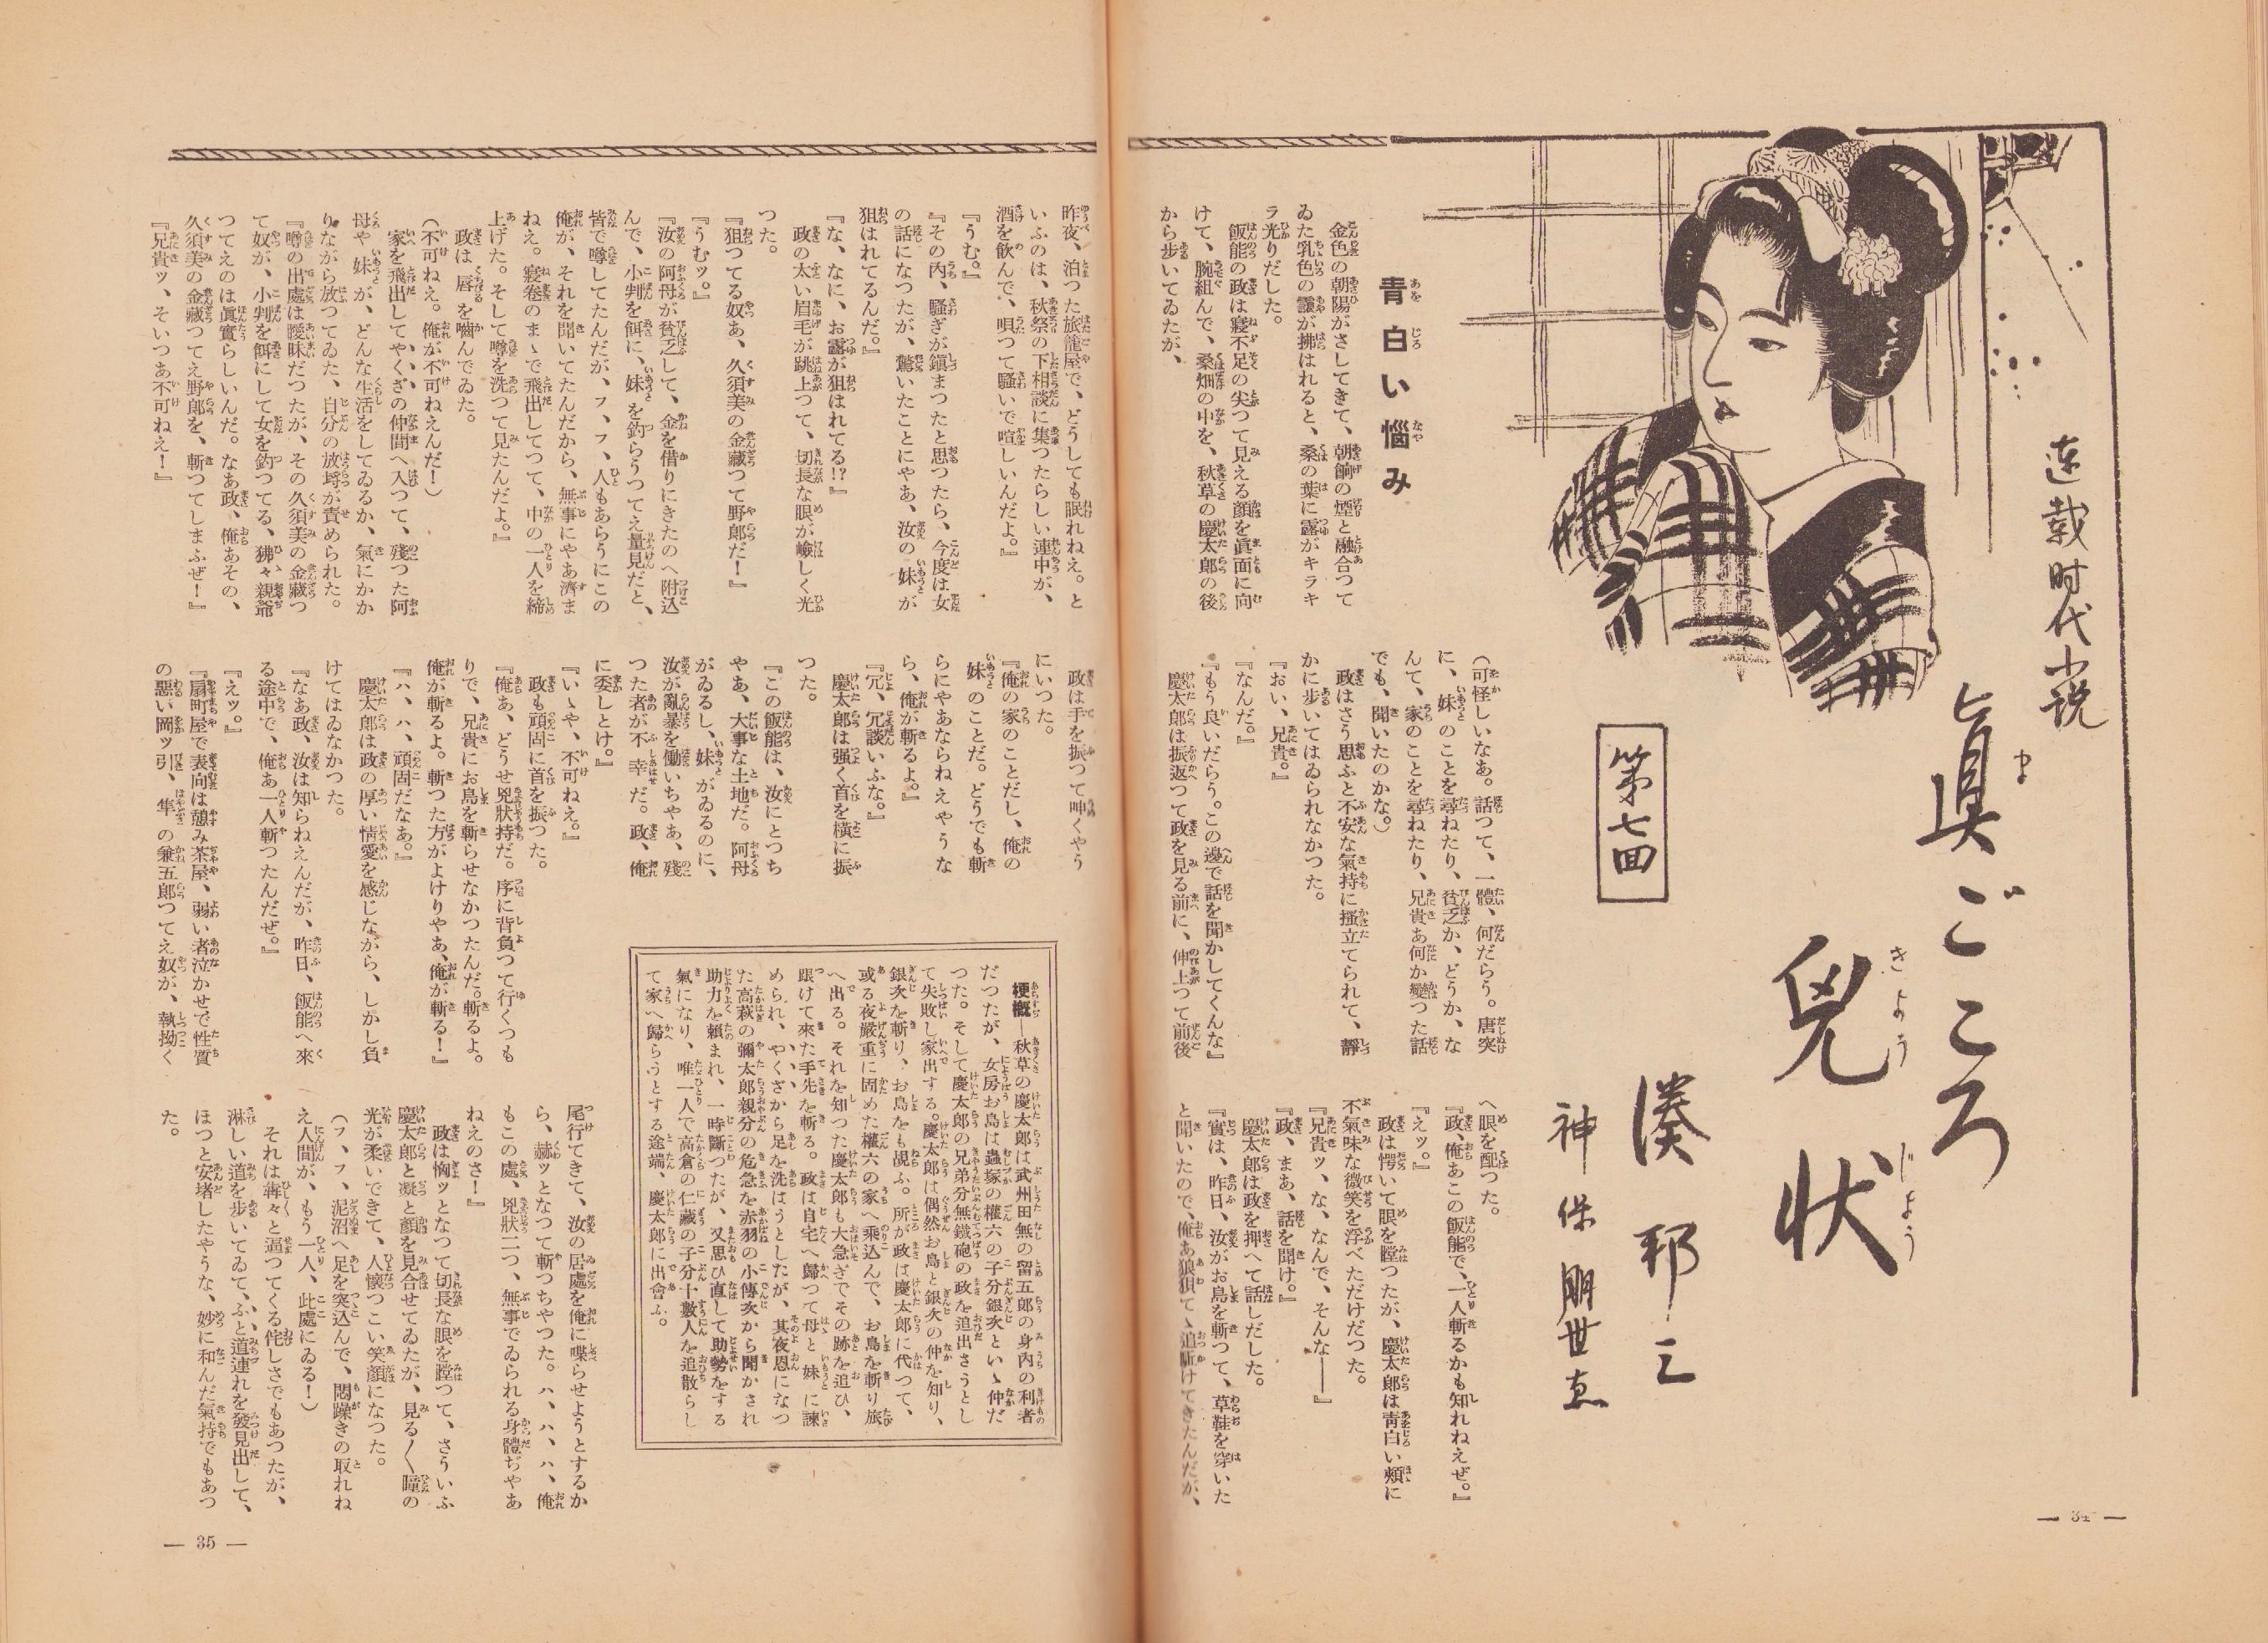 連載時代小説
眞ごころ
兇状
ま
きよう
じよう
湊邦三
神保朋世画
第七回
青白い惱み
金色の朝陽がさしてきて、朝餉の煙と融合つて
ゐた乳色の靄が拂はれると、桑の葉に露がキラキ
ラ光りだした。
飯能の政は寢不足の尖つて見える顏を眞面に向
けて、腕組んで、桑畑の中を、秋草の慶太郎の後
から歩いてゐたが、
(可怪しいなあ。話つて、一體、何だらう。唐突
に、妹のことを尋ねたり、貧乏か、どうか、な
んて、家のことを尋ねたり、兄貴あ何か變つた話
でも、聞いたのかな。)
政はさう思ふと不安な氣持に掻立てられて、靜
かに歩いてはゐられなかつた。
『おい、兄貴。』
『なんだ。』
『もう良いだらう。この邊で話を聞かしてくんな』
慶太郎は振返つて政を見る前に、伸上つて前後
へ眼を配つた。
『政、俺あこの飯能で、一人斬るかも知れねえぜ。』
『えッ。』
政は愕いて眼を瞠つたが、慶太郎は青白い頰に
不氣味な微笑を浮べただけだつた。
『兄貴ッ、な、なんで、そんな――』
『政、まあ、話を聞け。』
慶太郎は政を押へて話しだした。
『實は、昨日、汝がお島を斬つて、草鞋を穿いた
と聞いたので、俺あ狼狽てゝ追駈けてきたんだが、
― 34 ―
昨夜、泊つた旅籠屋で、どうしても眠れねえ。と
いふのは、秋祭の下相談に集つたらしい連中が、
酒を飲んで、唄つて騷いで喧しいんだよ。』
『うむ。』
『その内、騷ぎが鎭まつたと思つたら、今度は女
の話になつたが、驚いたことにやあ、汝の妹が
狙はれてるんだ。』
『な、なに、お露が狙はれてる!?』
政の太い眉毛が跳上つて、切長な眼が嶮しく光
つた。
『狙つてる奴あ、久須美の金藏つて野郎だ！』
『うむッ。』
『汝の阿母が貧乏して、金を借りにきたのへ附込
んで、小判を餌に、妹を釣らうつてえ量見だと、
皆で噂してたんだが、フ、フ、人もあらうにこの
俺が、それを聞いてたんだから、無事にやあ濟ま
ねえ。寢卷のまゝで飛出してつて、中の一人を締
上げた。そして噂を洗つて見たんだよ。』
政は唇を嚙んでゐた。
(不可ねえ。俺が不可ねえんだ！)
家を飛出してやくざの仲間へ入つて、殘つた阿
母や妹が、どんな生活をしてゐるか、氣にかか
りながら放つてゐた、自分の放埒が責められた。
『噂の出處は曖昧だつたが、その久須美の金藏つ
て奴が、小判を餌にして女を釣つてる、狒々親爺
つてえのは眞實らしいんだ。なあ政、俺あその、
久須美の金藏つてえ野郎を、斬つてしまふぜ！』
『兄貴ッ、そいつあ不可ねえ！』
政は手を振つて呻くやう
にいつた。
『俺の家のことだし、俺の
妹のことだ。どうでも斬
らにやあならねえやうな
ら、俺が斬るよ。』
『冗、冗談いふな。』
慶太郎は强く首を横に振
つた。
『この飯能は、汝にとつち
やあ、大事な土地だ。阿母
がゐるし、妹がゐるのに、
汝が亂暴を働いちやあ、殘
つた者が不幸だ。政、俺
に委しとけ。』
『いゝや、不可ねえ。』
政も頑固に首を振つた。
『俺あ、どうせ兇狀持だ。序に背負つて行くつも
りで、兄貴にお島を斬らせなかつたんだ。斬るよ。
俺が斬るよ。斬つた方がよけりやあ、俺が斬る！』
『ハ、ハ、頑固だなあ。』
慶太郎は政の厚い情愛を感じながら、しかし負
けてはゐなかつた。
『なあ政、汝は知らねえんだが、昨日、飯能へ來
る途中で、俺あ一人斬つたんだぜ。』
『えッ。』
『扇町屋で表向は憩み茶屋、弱い者泣かせで性質
の惡い岡ッ引、隼の兼五郎つてえ奴が、執拗く
尾行てきて、汝の居處を俺に喋らせようとするか
ら、赫ッとなつて斬つちやつた。ハ、ハ、ハ、俺
もこの處、兇狀二つ、無事でゐられる身體ぢやあ
ねえのさ！』
政は恟ッとなつて切長な眼を瞠つて、さういふ
慶太郎と凝と顏を見合せてゐたが、見る〳〵瞳の
光が柔いできて、人懷つこい笑顏になつた。
(フ、フ、泥沼へ足を突込んで、悶躁きの取れね
え人間が、もう一人、此處にゐる！)
それは犇々と逼つてくる侘しさでもあつたが、
淋しい道を歩いてゐて、ふと道連れを發見出して、
ほつと安堵したやうな、妙に和んだ氣持でもあつ
た。
梗概―秋草の慶太郎は武州田無の留五郎の身內の利者
だつたが、女房お島は蟲塚の權六の子分銀次といゝ仲だ
つた。そして慶太郎の兄弟分無鐵砲の政を追出さうとし
て失敗し家出する。慶太郎は偶然お島と銀次の仲を知り、
銀次を斬り、お島をも覘ふ。所が政は慶太郎に代つて、
或る夜嚴重に固めた權六の家へ乘込んで、お島を斬り旅
へ出る。それを知つた慶太郎も大急ぎでその跡を追ひ、
跟けて來た手先を斬る。政は自宅へ歸つて母と妹に諫
められ、やくざから足を洗はうとしたが、其夜恩になつ
た高萩の彌太郎親分の危急を赤羽の小傳次から聞かされ
助力を賴まれ、一時斷つたが、又思ひ直して助勢をする
氣になり、唯一人で高倉の仁藏の子分十數人を追散らし
て家へ歸らうとする途端、慶太郎に出會ふ。
― 35 ―